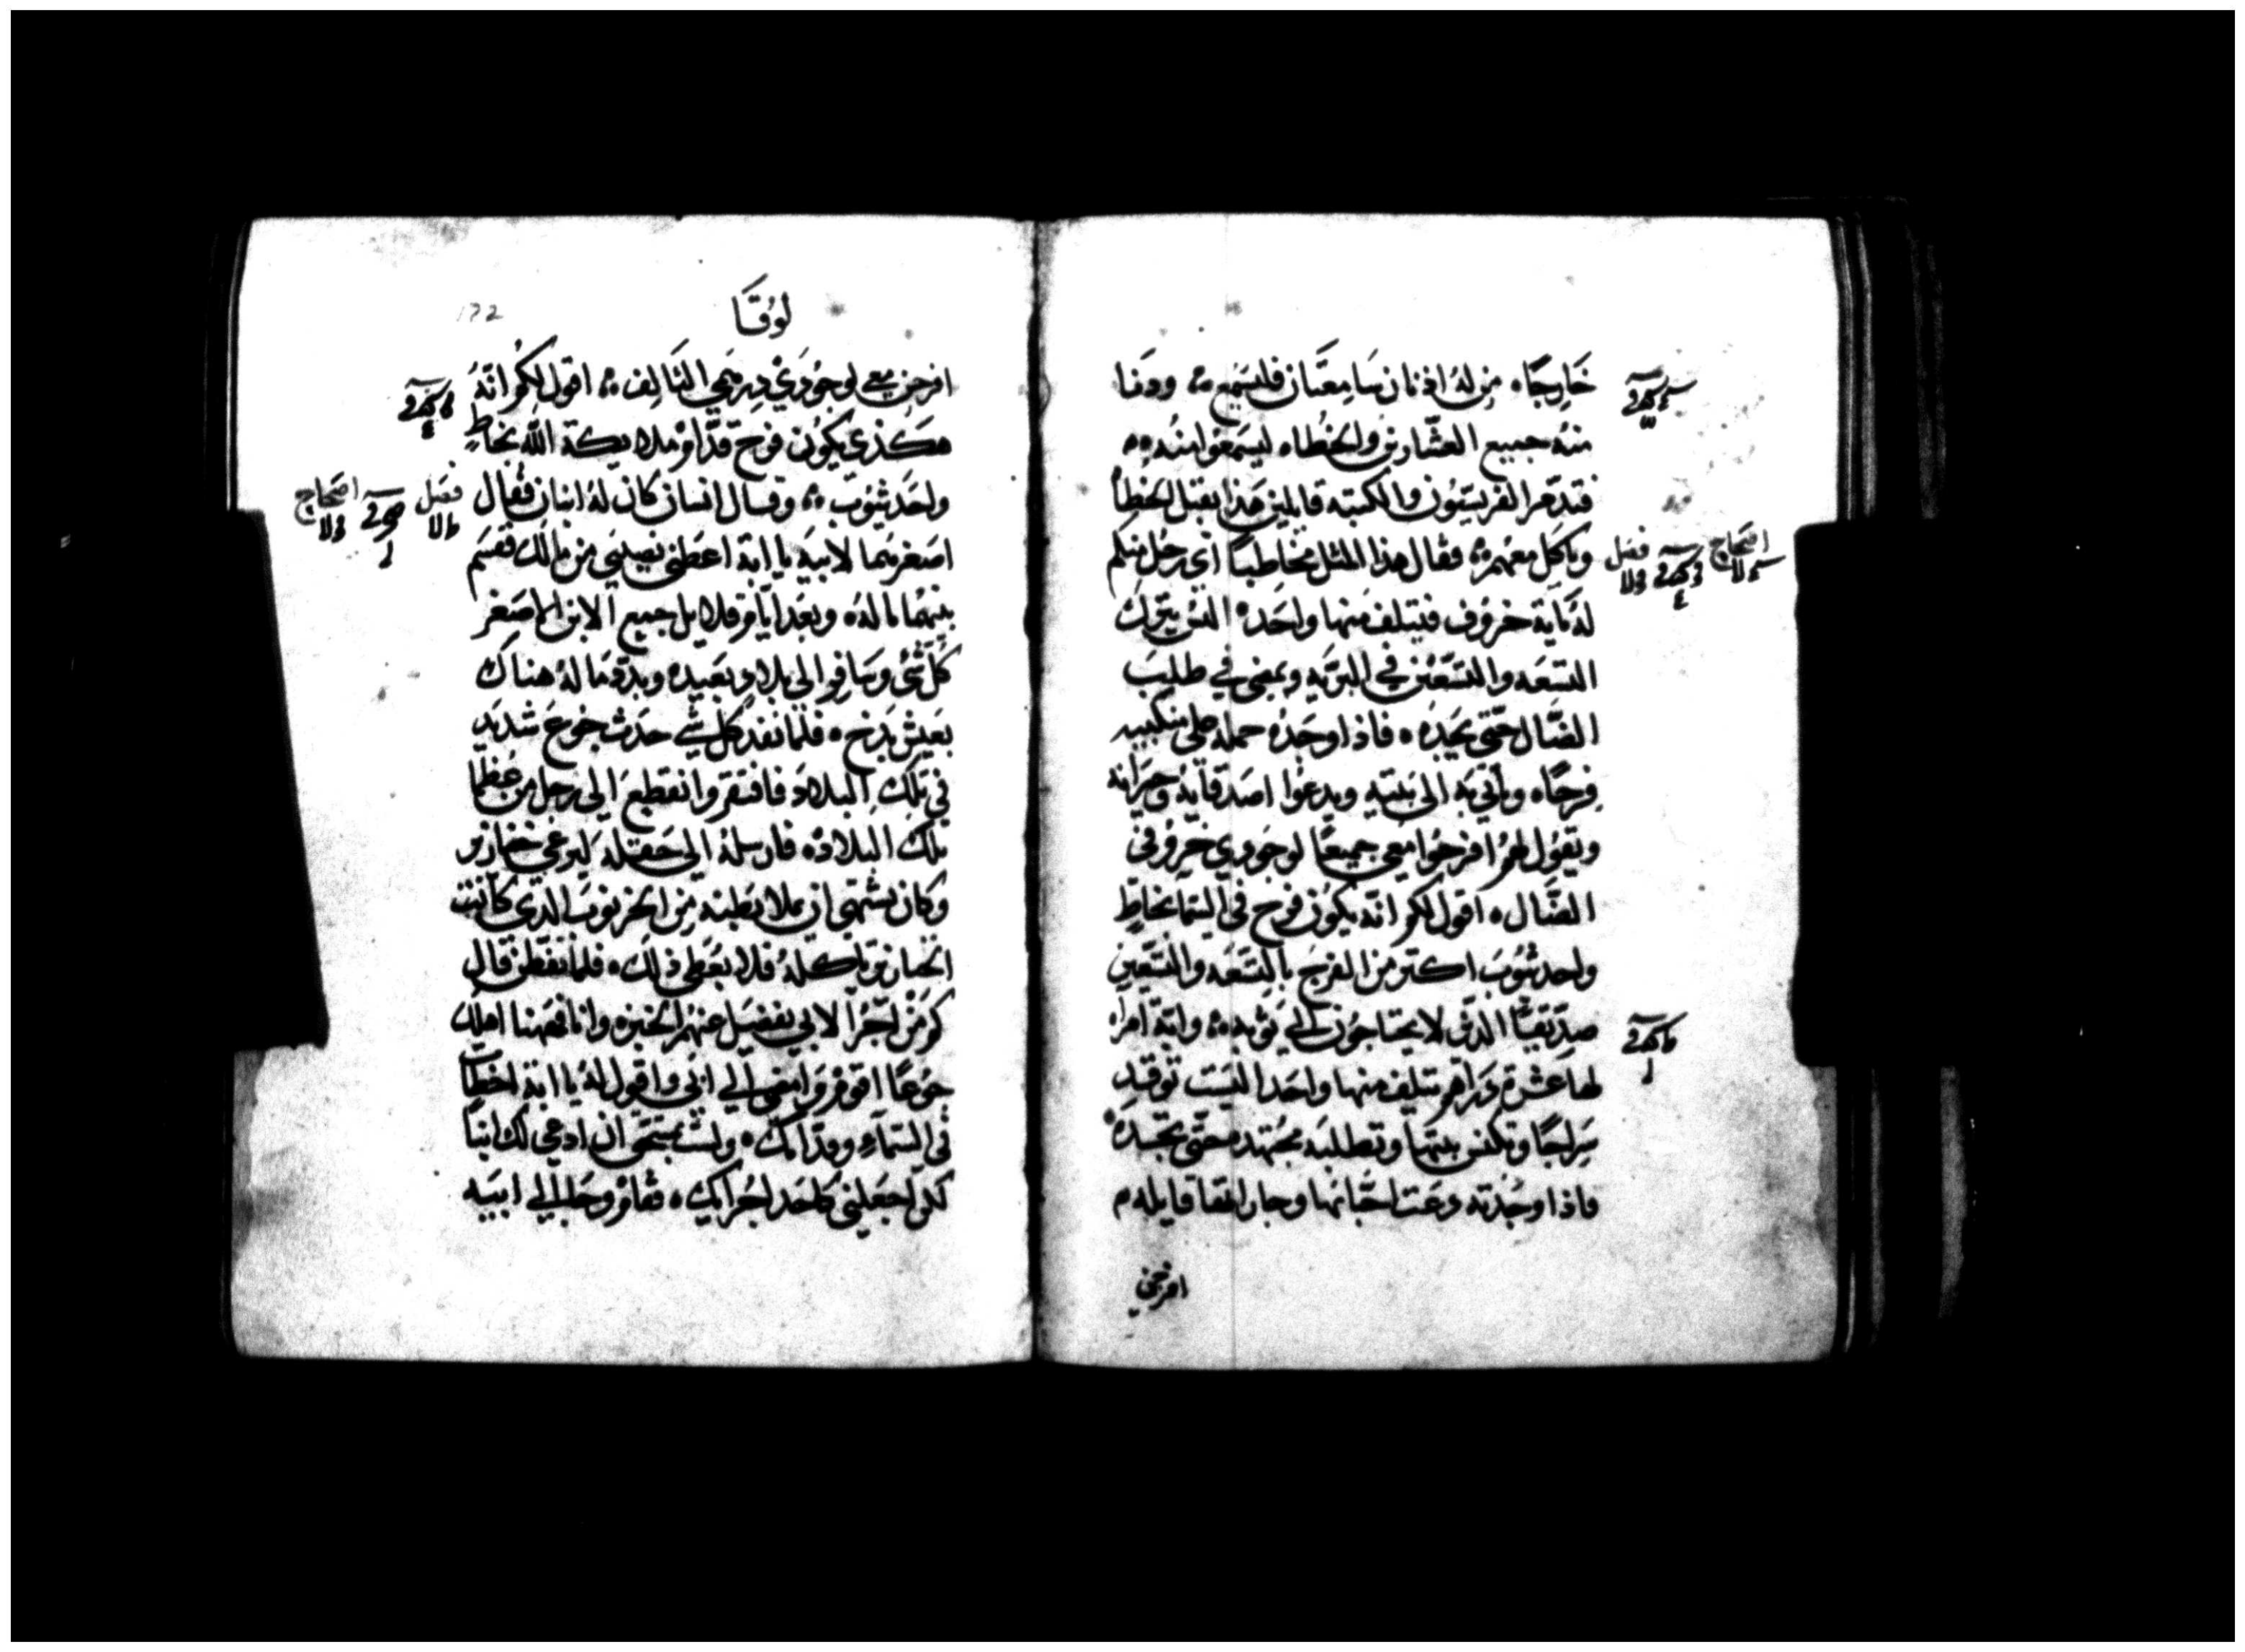 خَارِجًا ه مِن لهُ اذنان سَامِعَتان فليسَمِع ه ودنا
منهُ جميع العشّارين والخطاه ليسَمعَوا منهُ ه
فتدمّر الفريسيّون والكتبه قايلين هَذا يقبل الخطاُ
وياكل معهمُ ه فقال هذا المثل مخاطباً اي رجُل منكم
لهُ مَاية خروف فيتلف منها واحَده اليسَ يترك
التسَعَه والتسَّعَين في البرّيه ويمضي في طلبَ
الضّال حتّى يجَدهُ ه فاذا وجَدُه حمله على منكبيه
فرحًا ه وياتي به الى بيته ويدعوا اصَدقايهُ وجيَرانه
ويقوُل لهمُ افرحُوا معي جميعًا لوجَودي خرُوفي
الضَّال ه اقول لكم انّه يكوُن فرح في السَّما بخاطٍ
واحد يتوُبَ اكتر من الفرح بالتسَعَه والتسَعَين
صدّيَقيًا الدين لا يحتاجون الى توبه ه وايّة امراه
لها عشرة دَراهم تتلف منها واحَدا ليسَت توقدِ
سَراجًا وتكنس بيتهَا وتطلبَه مجُتهده حتّى تجَدهُ
فاذا وجُدته دعَت احبّاتها وجاراتها قايله م
افرحنَ
لوُقَا
افرحن معي لوجوُديْ دِرهمي التَالف ه اقول لكمُ انّهُ
هكَذي يكوُن فرح قدّاوم ملايكة الله بخاطٍ
واحَد يتوُب ه وقال انسان كان لهُ ابنان فقال
اصَغر منهما لابيه يا ابة اعطني نصيبي من مالك فقسَم
بينهمُا مالهُ ه وبعَد ايّام قلايل جميع الابن الاصَغر
كُلّ شَي وسَافر الى بلاد بعَيده وبدّد مَا لهُ هناك
بعَيش بَدخ ه فلمّا نفد كل شي حدَث جُوع شديَد
في تلك البلادَ فافتقر وانقطع الى رَجل من عُظما
تلك البلاد ه فارسلهُ الى حَقله ليرعي خنازير
وكان يشتهَي ان يملا بطنه من الخرنوبَ الدي كانَت
الخنازير تاكلهُ فلا يعَطي ذلك ه فلمّا تفطّن قال
كم مَن اجُرا لابي يفضَل عنهمُ الخبز ه وانا هَهنا اهلك
جوُعًا اقومُ وَامضي الى ابي واقول لهُ يا ابة اخطات
في السّمآءِ وقدّامك ه ولسَت بمستحَق ان ادعي لك ابنَا
لكن اجعَلني كاحَد اجُرايك ه فقامُ وجَا الى ابيَه
فصَل
اصَحاح
فصَل
اصَحاح